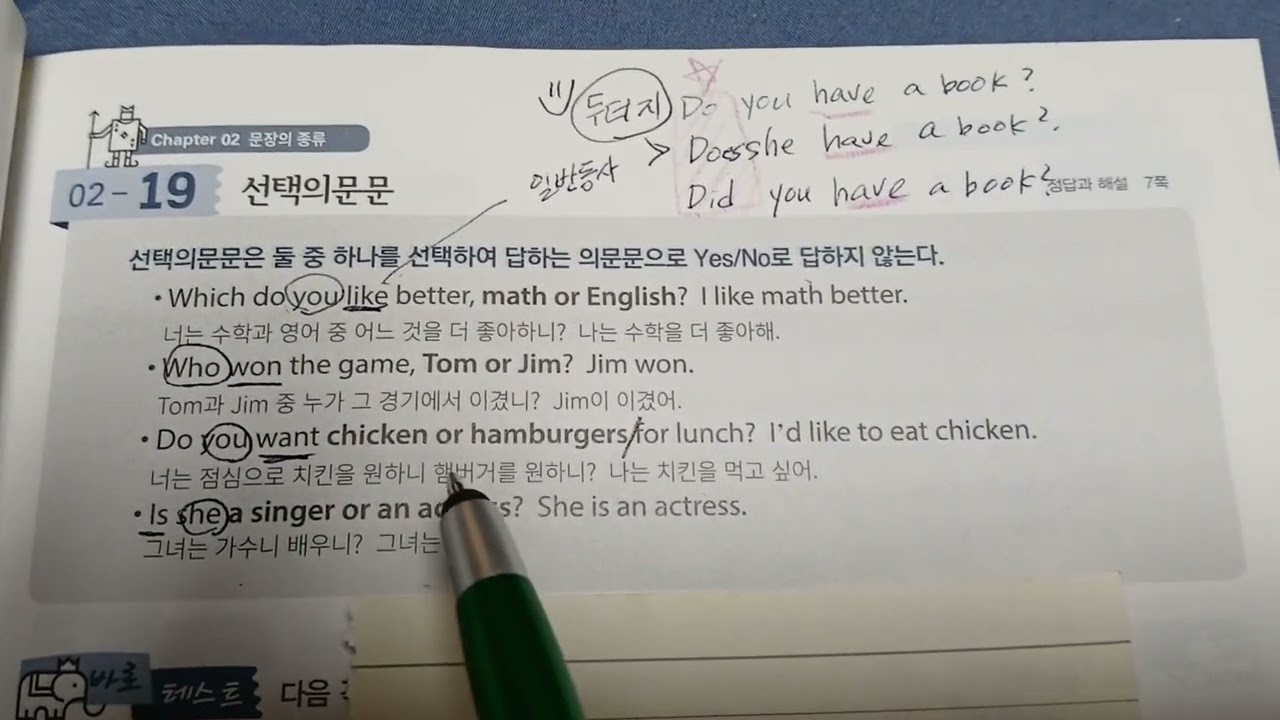 두더지 Do you have a book?
Chapter 02 문장의 종류
Does she have a book?
일반동사
02-19 선택의문문
Did you have a book?
정답과 해설 7쪽
선택의문문은 둘 중 하나를 선택하여 답하는 의문문으로 Yes/No로 답하지 않는다.
• Which do you like better, math or English? I like math better.
너는 수학과 영어 중 어느 것을 더 좋아하니? 나는 수학을 더 좋아해.
• Who won the game, Tom or Jim? Jim won.
Tom과 Jim 중 누가 그 경기에서 이겼니? Jim이 이겼어.
• Do you want chicken or hamburgers/for lunch? I'd like to eat chicken.
너는 점심으로 치킨을 원하니 햄버거를 원하니? 나는 치킨을 먹고 싶어.
• Is she a singer or an? She is an actress.
그녀는 가수니 배우니? 그녀는
바로 테스트 다음